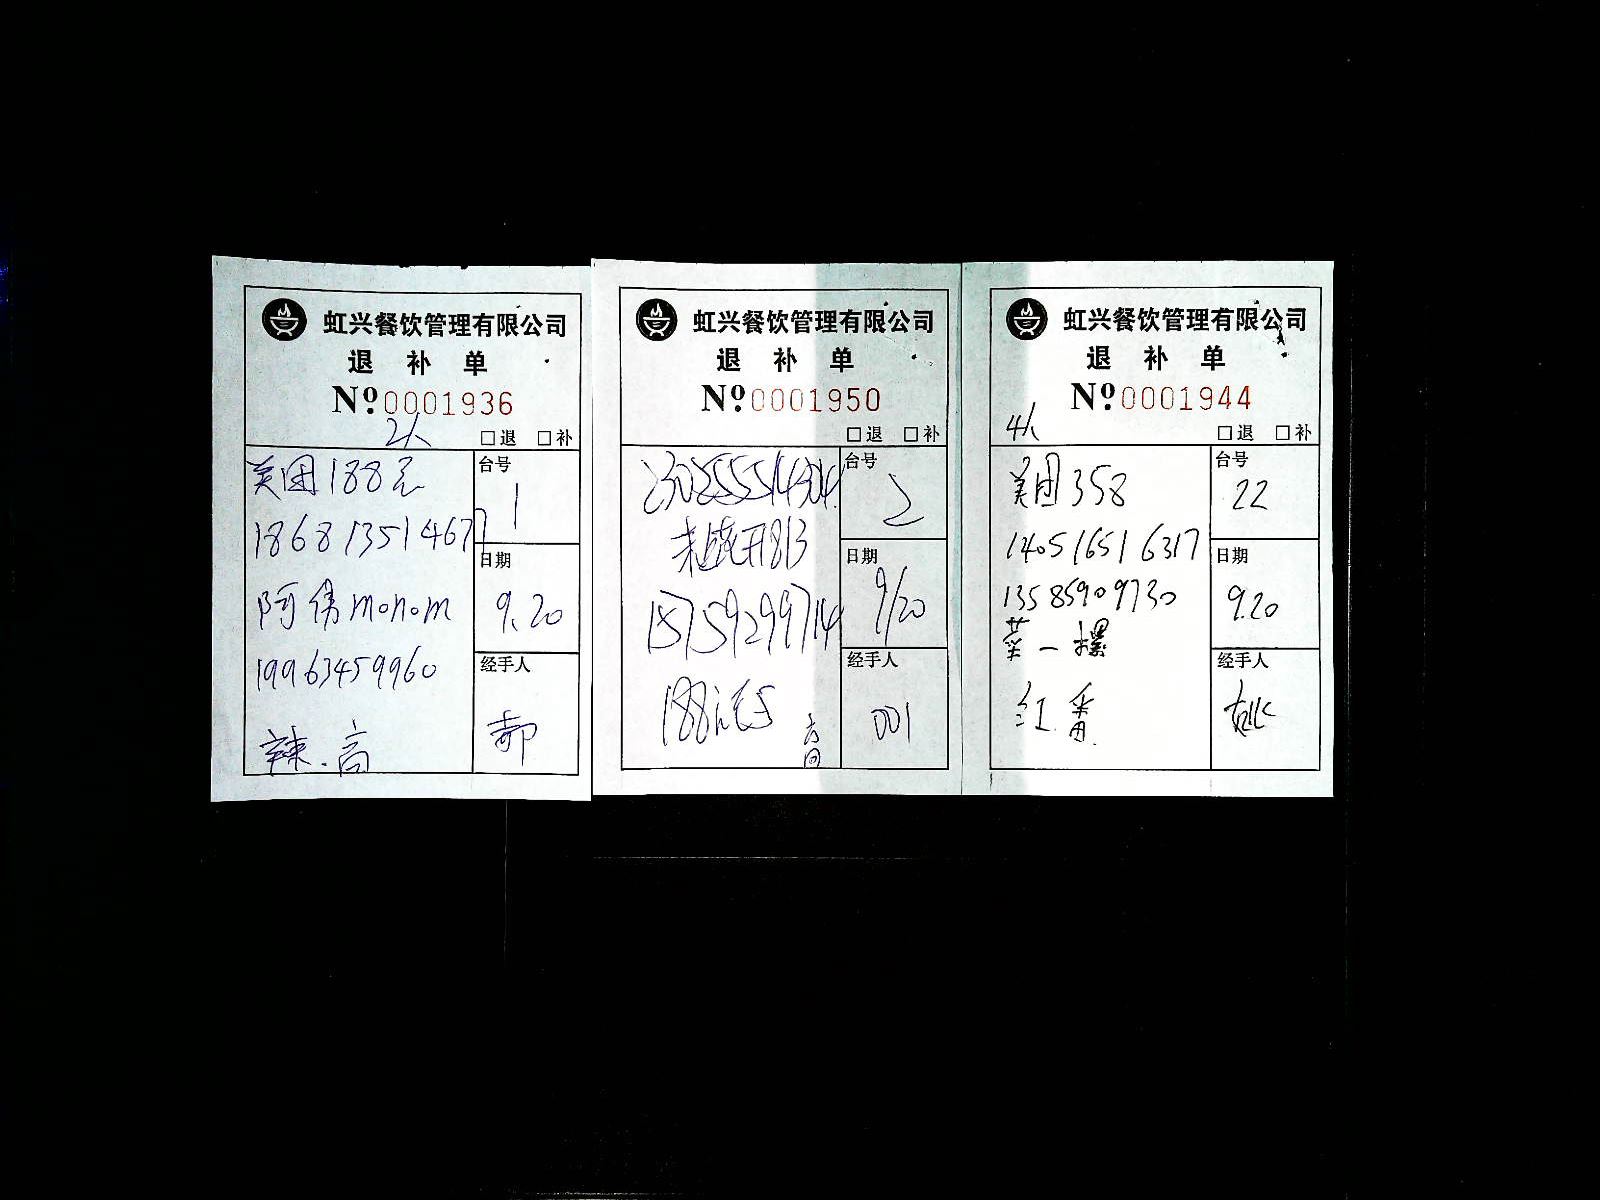 虹兴餐饮管理有限公司
退 补 单
Nº 0001936
2人
□退 □补
美团188元
台号
1
186813514677
日期
9.20
阿伟monom
19963459960
经手人
郝
辣.高
虹兴餐饮管理有限公司
退 补 单
Nº 0001950
□退 □补
台号
2
日期
9/20
15759299714
188
经手人
001
虹兴餐饮管理有限公司
退 补 单
Nº 0001944
4人
□退 □补
美团358
台号
22
140516516317
日期
9.20
13585909730
菜一
经手人
姚
红.番